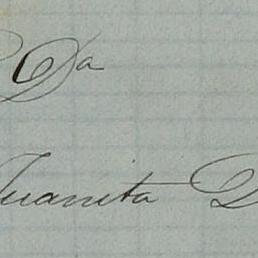 Da
Juanita D